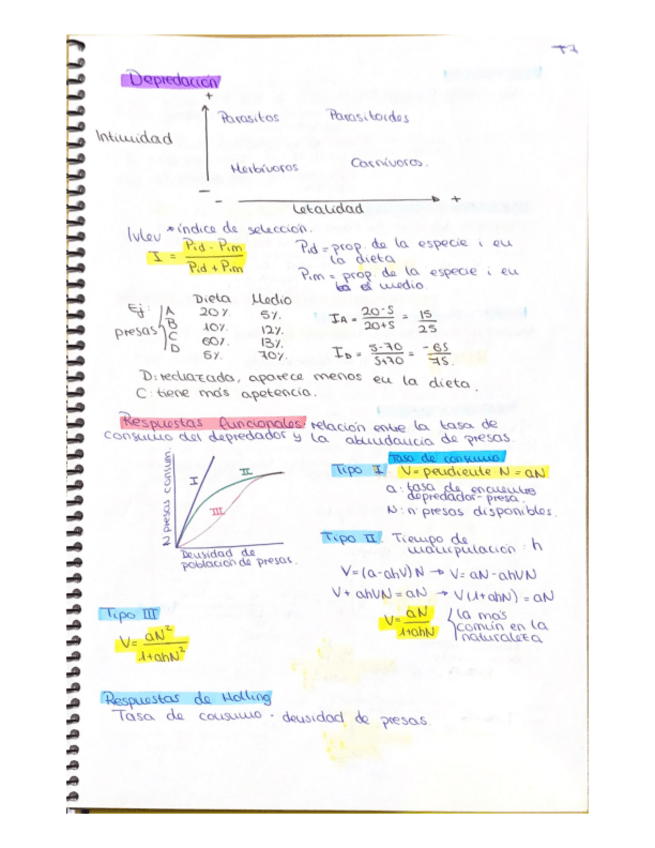 Depredación
+
Parasitos Parasitoides
Intimidad
Herbívoros Carnívoros.
-
- +
Letalidad
Ivlev * índice de selección.
I = Pid - Pim / Pid + Pim
Pid = prop. de la especie i en
la dieta
Pim = prop. de la especie i en
el medio.
Dieta Medio
Ej: presas
A 20% 5%
B 10% 12%
C 60% 13%
D 5% 70%
IA = 20-5 / 20+5 = 15 / 25
ID = 5-70 / 5+70 = -65 / 75.
D: rechazada, aparece menos en la dieta.
C: tiene más apetencia.
Respuestas funcionales: relación entre la tasa de
consumo del depredador y la abundancia de presas.
Tasa de consumo
Tipo I. V = pendiente N = aN
a: tasa de encuentro
depredador-presa.
N: nº presas disponibles.
presas consum.
I
II
III
Densidad de
población de presas.
Tipo II. Tiempo de
manipulación: h
V=(a-ahV)N → V=aN-ahVN
V+ahVN=aN → V(1+ahN)=aN
V= aN / 1+ahN
la más
común en la
naturaleza
Tipo III
V= aN² / 1+ahN²
Respuestas de Holling
Tasa de consumo - densidad de presas.